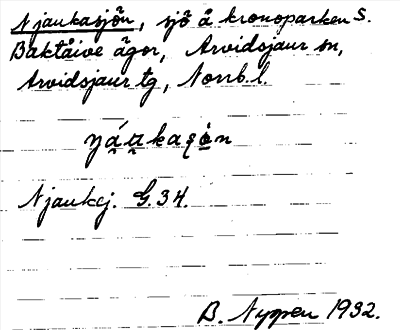 Njaukasjön, sjö å kronoparken S.
Baktåive ägor, Arvidsjaur sn,
Arvidsjaur tg, Norrb. l.
Njaukcj. G.34.
B. Nygren 1932.